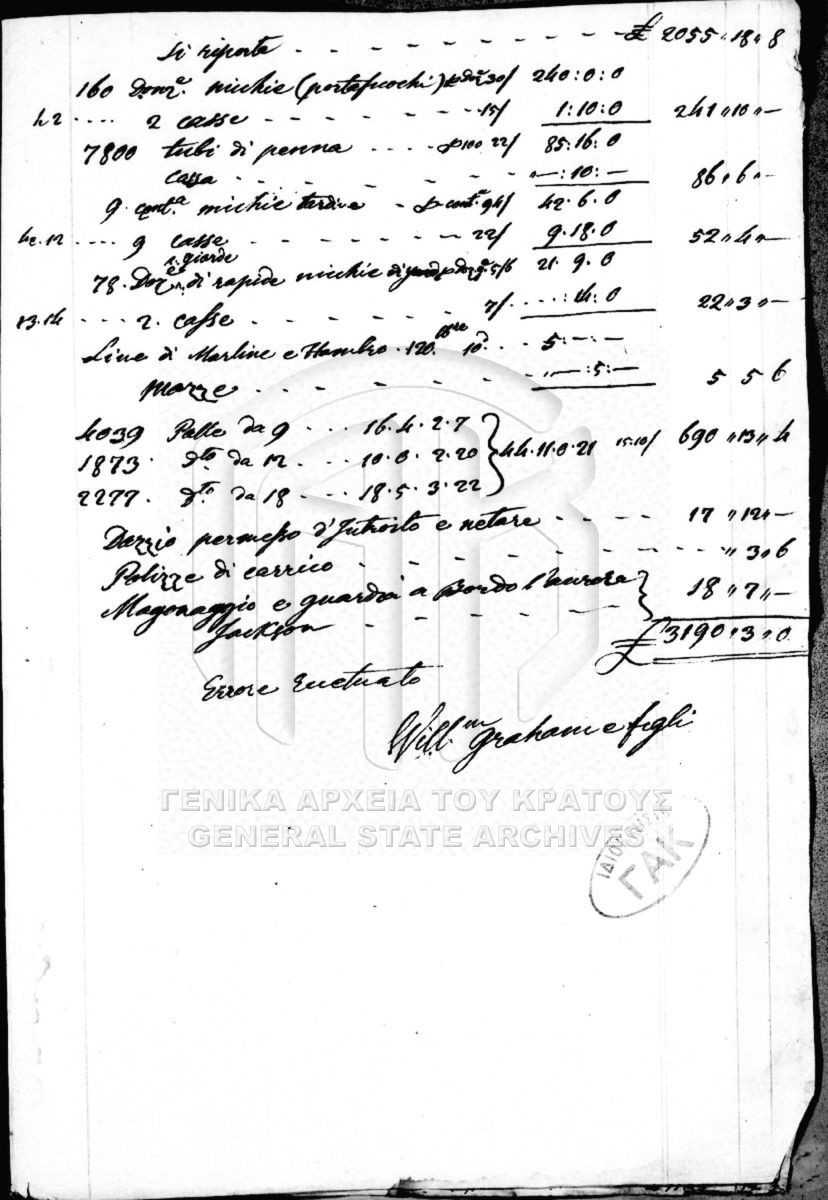 Si riporta - - - - - - - £ 2055 " 18 " 8
160 Donz.e michie (portafuochi) p doz 30/ 240 : 0 : 0
2 casse - - - - - - 15/ 1 : 10 : 0 241 " 10 " —
7800 tubi di penna - - - p 100 22/ 85 : 16 : 0
Cassa - - - - - - - — : 10 : — 86 " 6 " —
9 cent.a michie tardive - p cent.a 94/ 42 . 6 . 0
.... 9 casse - - - - - - 22/ 9 . 18 . 0 52 " 4 " —
78 . Doz di rapide michie 5/6 21 . 9 . 0
13.14 ... 2 . casse - - - - - 7/ ... : 14 : 0 22 " 3 " —
Line di Marline e Hambro . 120 10d .. 5 : — : —
Mazze - - - - - - - " — : 5 : — 5 5 6
4039 Palle da 9 ... 16 . 4 . 2 . 7
1873 . d.to da 12 ... 10 . 0 . 2 . 20 } 44 . 11 . 0 . 21 15.10/ 690 " 13 " 4
2277 . d.to da 18 ... 18 . 5 . 3 . 22
Dazzio permesso d'Introito e netare - - - - 17 " 12 " —
Polizze di carrico - - - - - - - - " 3 " 6
Magonaggio e guardia a Bordo l'aurora } 18 " 7 " —
Jackson - - - - - - £ 3190 " 3 " 0
Errore Euctuato
Will.m Graham e figli
ΓΕΝΙΚΑ ΑΡΧΕΙΑ ΤΟΥ ΚΡΑΤΟΥΣ
GENERAL STATE ARCHIVES
ΓΑΚ